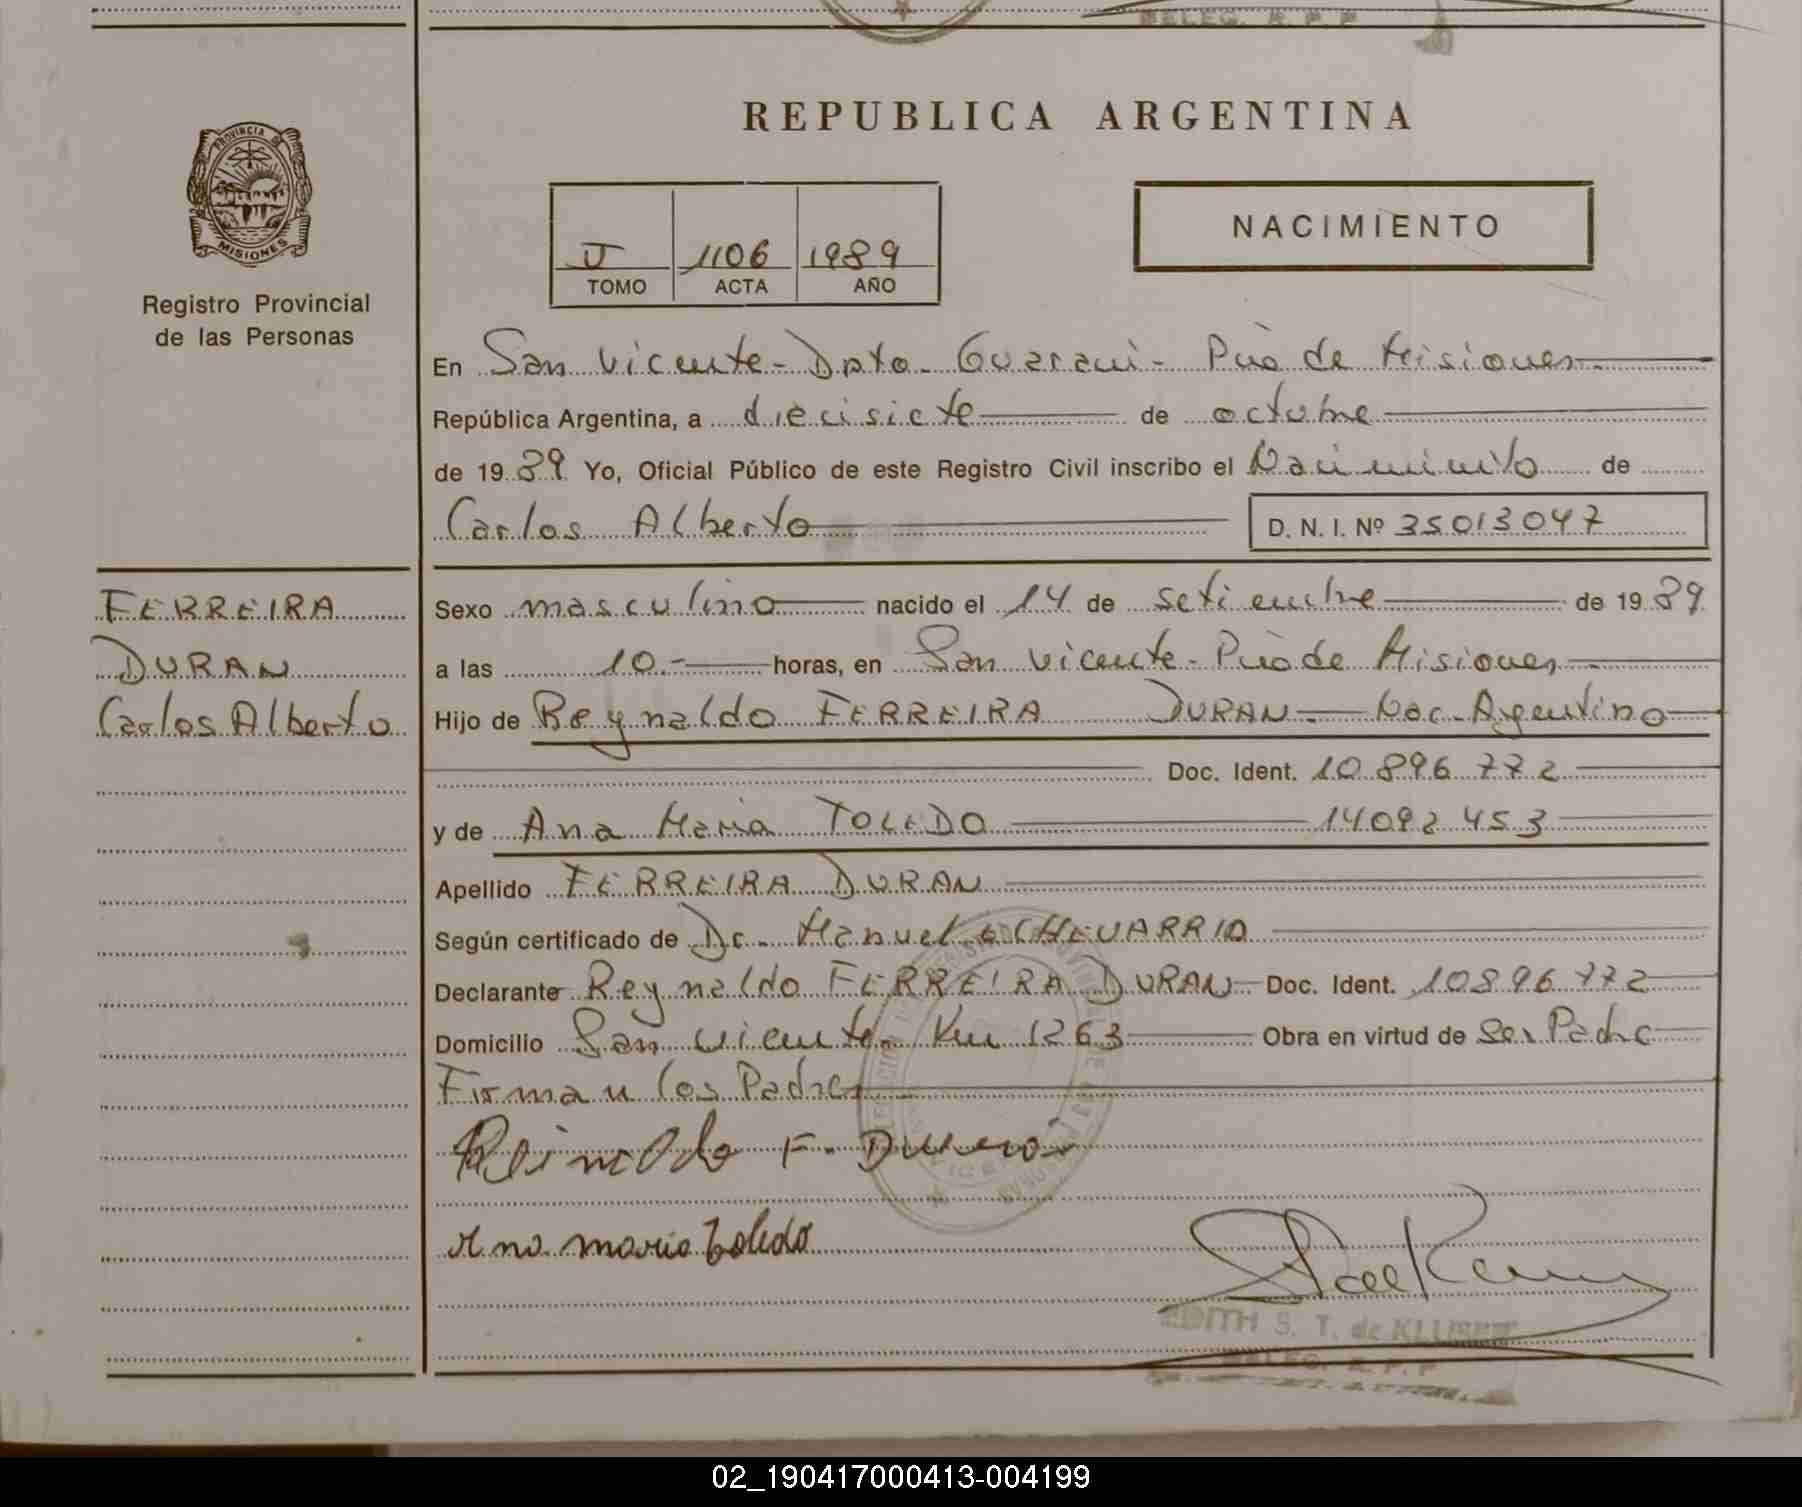 DELEG. R. P. P
REPUBLICA ARGENTINA
PROVINCIA DE
MISIONES
Registro Provincial
de las Personas
NACIMIENTO
1106 1989
TOMO ACTA AÑO
En San Vicente - Dpto. Guarani - Pcia de Misiones
República Argentina, a diecisiete de octubre
de 1989 Yo, Oficial Público de este Registro Civil inscribo el Nacimiento de
Carlos Alberto D. N. I. Nº 35013047
FERREIRA
DURAN
Carlos Alberto
Sexo masculino nacido el 14 de setiembre de 1989
a las 10.- horas, en San Vicente - Pcia de Misiones
Hijo de Reynaldo FERREIRA DURAN - Nac. Argentino
Doc. Ident. 10.896.772
y de Ana Maria TOLEDO 14092453
Apellido FERREIRA DURAN
Según certificado de Dr. Manuel ECHEVARRIA
Declarante Reynaldo FERREIRA DURAN Doc. Ident. 10896772
Domicilio San Vicente. Km 1263 Obra en virtud de Ser Padre
Firman los Padres
F.
Ana maria Toledo
EDITH S. T. de
DELEG. R. P. P
02_190417000413-004199